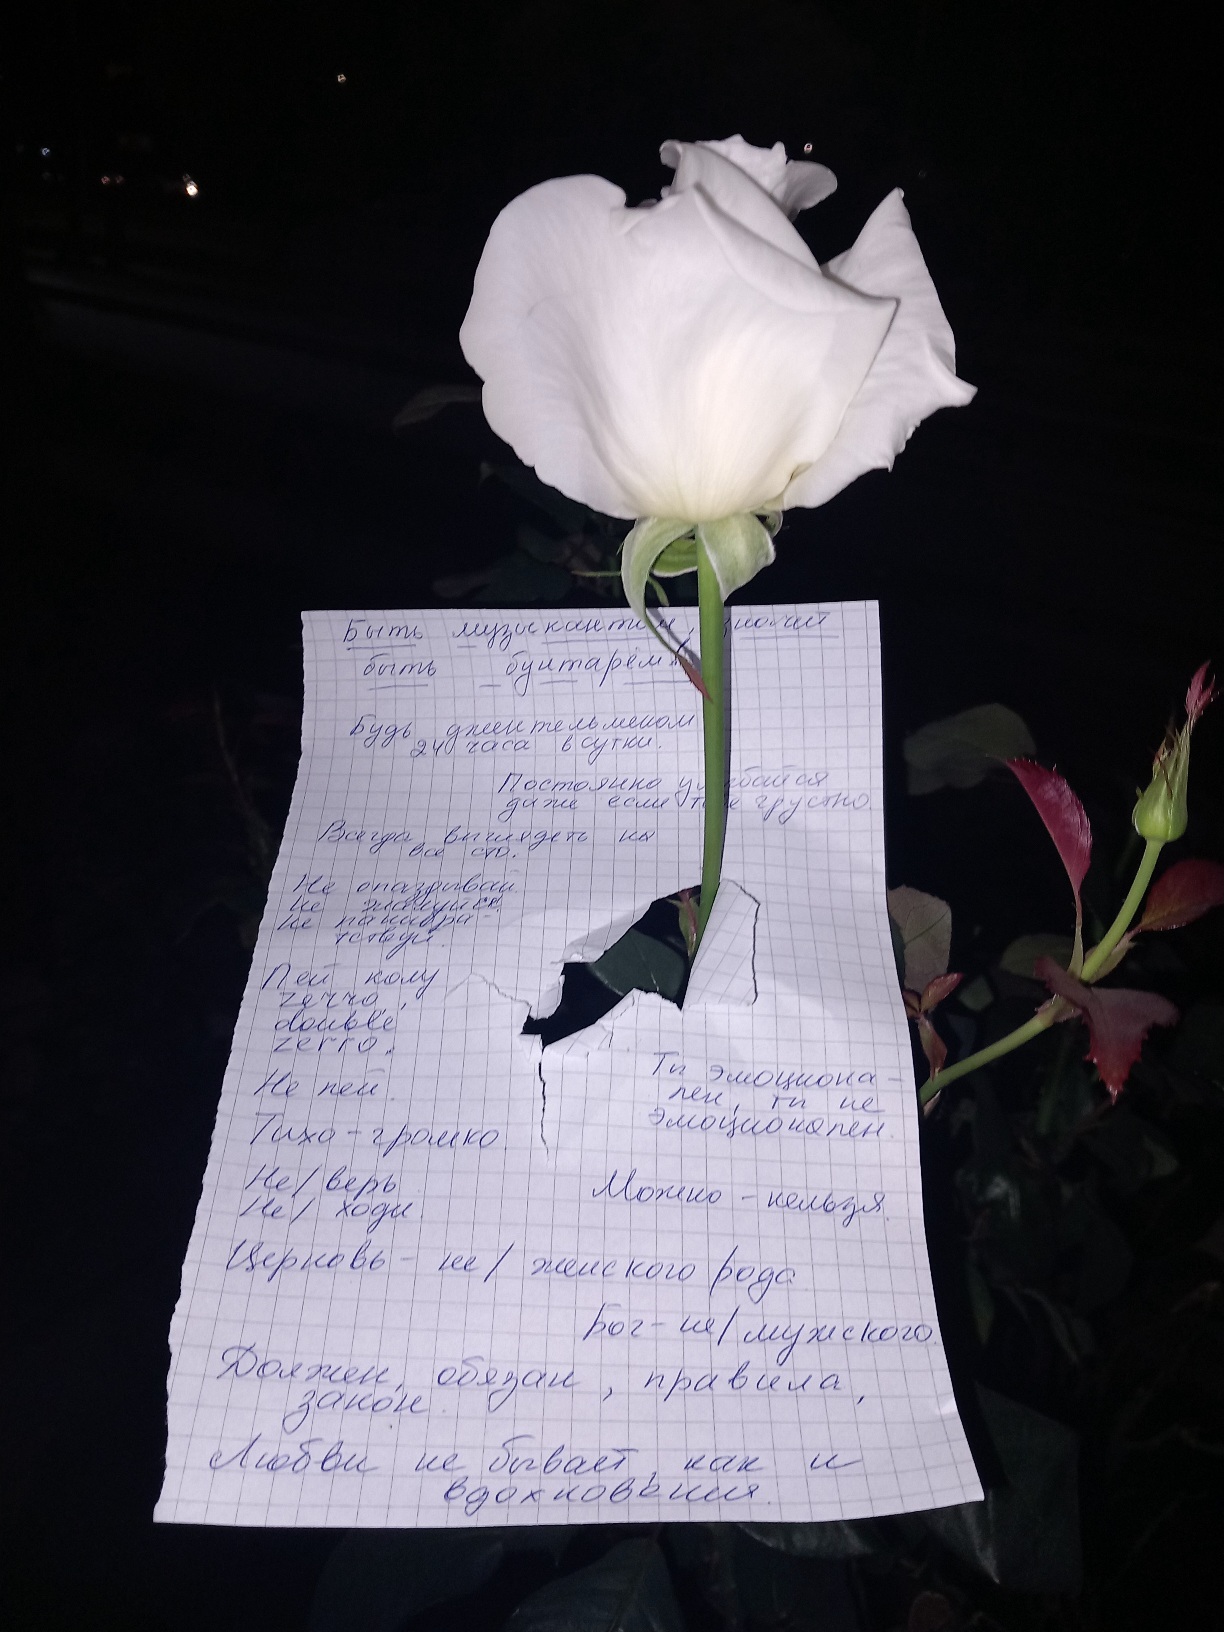 Быть музыкантом, значит
быть бунтарём!
Будь джентельменом
24 часа в сутки.
Постоянно улыбайся
даже если тебе грустно.
Всегда выглядеть на
все сто.
Не опаздывай
не жалуйся.
Не панибра-
тствуй.
Пей колу
zerro,
double
zerro.
Не пей.
Ты эмоциона-
лен, ты не
эмоционален.
Тихо-громко.
Не/верь
Не/ходи.
Можно - нельзя.
Церковь - не/женского рода
Бог - не/мужского.
Должен, обязан, правила,
закон.
Любви не бывает, как и
вдохновения.